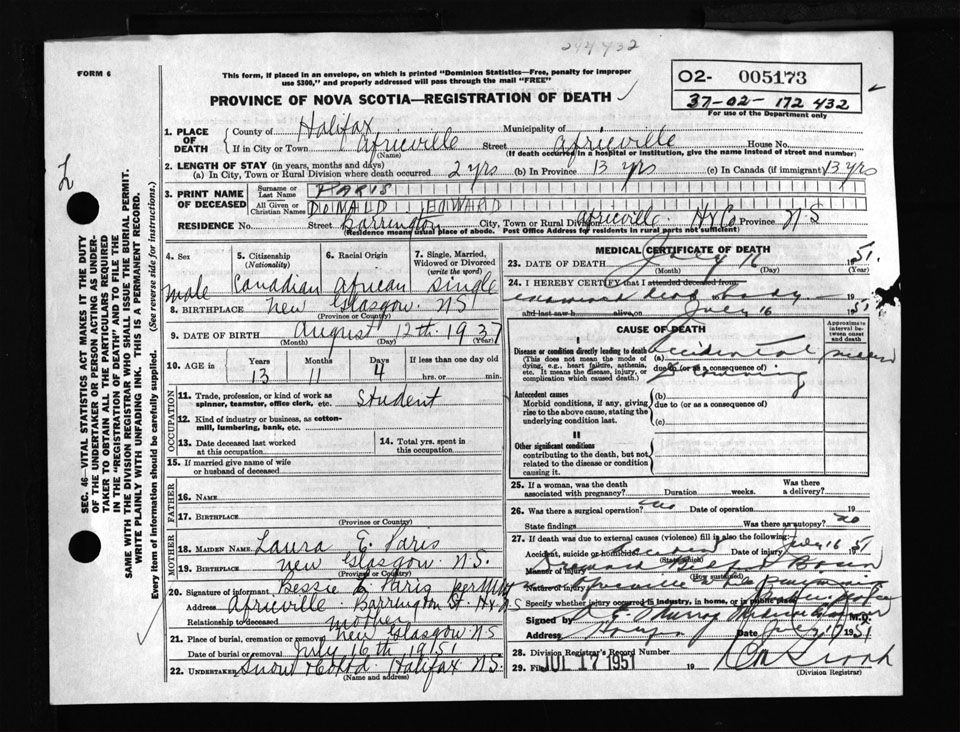 244432
FORM 6
This form, if placed in an envelope, on which is printed "Dominion Statistics—Free, penalty for improper
use $300," and properly addressed will pass through the mail "FREE"
PROVINCE OF NOVA SCOTIA—REGISTRATION OF DEATH
02- 005173
37-02- 172 432
For use of the Department only
SEC. 46—VITAL STATISTICS ACT MAKES IT THE DUTY
OF THE UNDERTAKER OR PERSON ACTING AS UNDER-
TAKER TO OBTAIN ALL THE PARTICULARS REQUIRED
IN THE "REGISTRATION OF DEATH" AND TO FILE THE
SAME WITH THE DIVISION REGISTRAR WHO SHALL ISSUE THE BURIAL PERMIT.
WRITE PLAINLY WITH UNFADING INK. THIS IS A PERMANENT RECORD.
Every item of information should be carefully supplied. (See reverse side for instructions.)
1. PLACE OF DEATH County of Halifax Municipality of
If in City or Town Africville Street Africville House No.
(Name) (If death occurred in a hospital or institution, give the name instead of street and number)
2. LENGTH OF STAY (in years, months and days)
(a) In City, Town or Rural Division where death occurred 2 yrs (b) In Province 13 yrs (c) In Canada (if immigrant) 13 yrs
3. PRINT NAME OF DECEASED Surname or Last Name PARIS
All Given or Christian Names DONALD EDWARD
RESIDENCE No. Street Barrington City, Town or Rural Division Africville Hx Co Province N S
(Residence means usual place of abode. Post Office Address for residents in rural parts not sufficient)
4. Sex 5. Citizenship (Nationality) 6. Racial Origin 7. Single, Married, Widowed or Divorced (write the word)
male Canadian African Single
8. BIRTHPLACE New Glasgow N S
(Province or Country)
9. DATE OF BIRTH August 12th 1937
(Month) (Day) (Year)
10. AGE in Years Months Days If less than one day old
13 11 4 hrs. or min.
OCCUPATION
11. Trade, profession, or kind of work as spinner, teamster, office clerk, etc. Student
12. Kind of industry or business, as cotton-mill, lumbering, bank, etc.
13. Date deceased last worked at this occupation 14. Total yrs. spent in this occupation
15. If married give name of wife or husband of deceased
FATHER
16. NAME
17. BIRTHPLACE
(Province or Country)
MOTHER
18. MAIDEN NAME Laura E. Paris
19. BIRTHPLACE New Glasgow N.S.
(Province or Country)
20. Signature of informant Bessie L Paris per
Address Africville Barrington St. Hx N S
Relationship to deceased mother
21. Place of burial, cremation or removal New Glasgow N S
Date of burial or removal July 16th 1951
22. UNDERTAKER Snow & Co Ltd Halifax N S.
(Name and address)
MEDICAL CERTIFICATE OF DEATH
23. DATE OF DEATH July 16 1951.
(Month) (Day) (Year)
24. I HEREBY CERTIFY that I attended deceased from
examined dead body 19
and last saw h alive on July 16 1951
CAUSE OF DEATH
Approximate interval between onset and death
I
Disease or condition directly leading to death (a) accidental
(This does not mean the mode of dying, e.g., heart failure, asthenia, etc. It means the disease, injury, or complication which caused death.) due to (or as a consequence of) drowning
Antecedent causes
Morbid conditions, if any, giving rise to the above cause, stating the underlying condition last.
(b)
due to (or as a consequence of)
(c)
II
Other significant conditions
contributing to the death, but not related to the disease or condition causing it.
25. If a woman, was the death associated with pregnancy? Duration weeks. Was there a delivery?
26. Was there a surgical operation? no Date of operation 19
State findings Was there an autopsy? no
27. If death was due to external causes (violence) fill in also the following:
Accident, suicide or homicide Accident Date of injury July 16 1951
(State which)
Manner of injury Drowned Bedford Basin
(How sustained)
Nature of injury Africville
Specify whether injury occurred in industry, in home, or in public place
Signed by Murray Medical Examiner M.D.
Address Date July 17 1951
28. Division Registrar's Record Number
29. Filed JUL 17 1951 19
(Division Registrar)